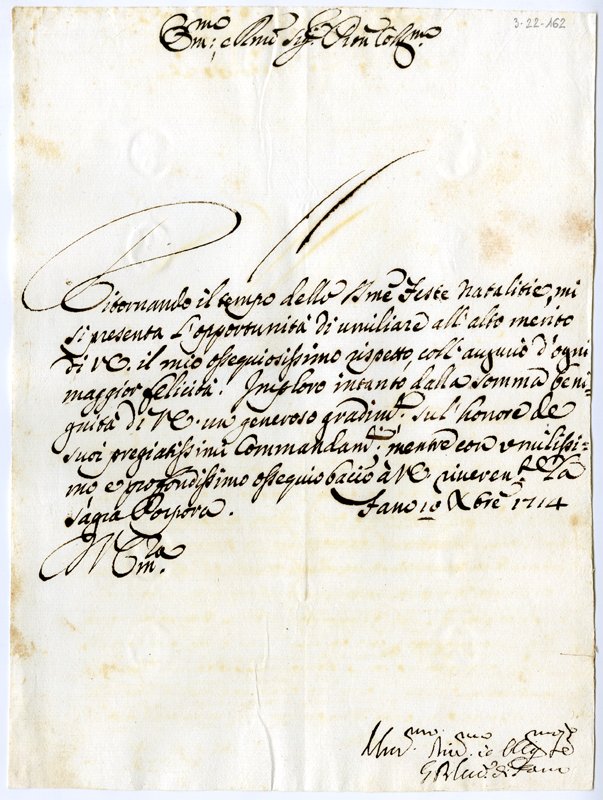 3-22-162
Em.mo e Rmo Sig.r Ron Coll.mo
Ritornando il tempo delle Sme Feste Natalitie, mi
si presenta l'opportunità di umiliare all'alto merito
di VE. il mio ossequiosissimo rispetto, coll'augurio d'ogni
maggior felicità. Imploro intanto dalla somma beni=
gnità di VE. un generoso gradim.to sul'honore de
suoi pregiatissimi Commandam.ti mentre con umilissi=
mo, e profondissimo ossequio bacio à VE riveren.te la
Sagra Porpora. Fano 10 Xbre 1714
Em.za
di Fano